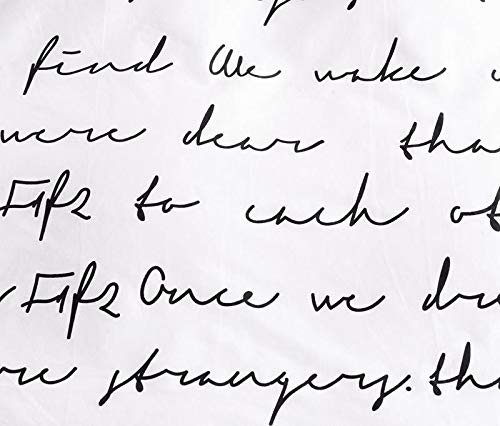 find We wake
were dear tha
to each ot
Once we dre
re strangers. the